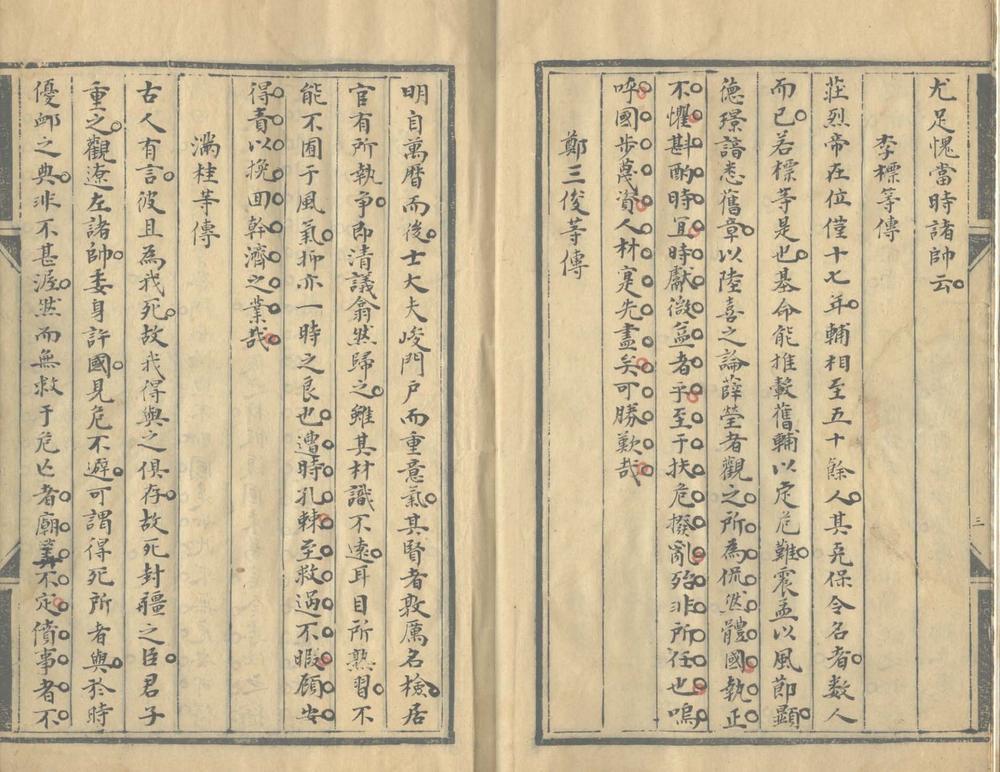 尤足愧當時諸帥云
李標等傳
莊烈帝在位僅十七年輔相至五十餘人其克保令名者數人
而已若標等是也基命能推轂舊輔以定危難震孟以風節顯
德璟諳悉舊章以陸喜之論薛瑩者觀之所為侃然體國執正
不懼斟酌時宜時獻微益者乎至于扶危撥亂殆非所任也嗚
呼國步蔑資人材寔先盡矣可勝歎哉
鄭三俊等傳
明自萬曆而後士大夫峻門戶而重意氣其賢者敦厲名檢居
官有所執爭即清議翕然歸之雖其材識不遠耳目所熟習不
能不囿于風氣抑亦一時之良也遭時孔棘至救過不暇顧安
得責以挽回幹濟之業哉
滿桂等傳
古人有言彼且為我死故我得與之俱存故死封疆之臣君子
重之觀遼左諸帥委身許國見危不避可謂得死所者與於時
優卹之典非不甚渥然而無救于危亡者廟筭不定僨事者不
三